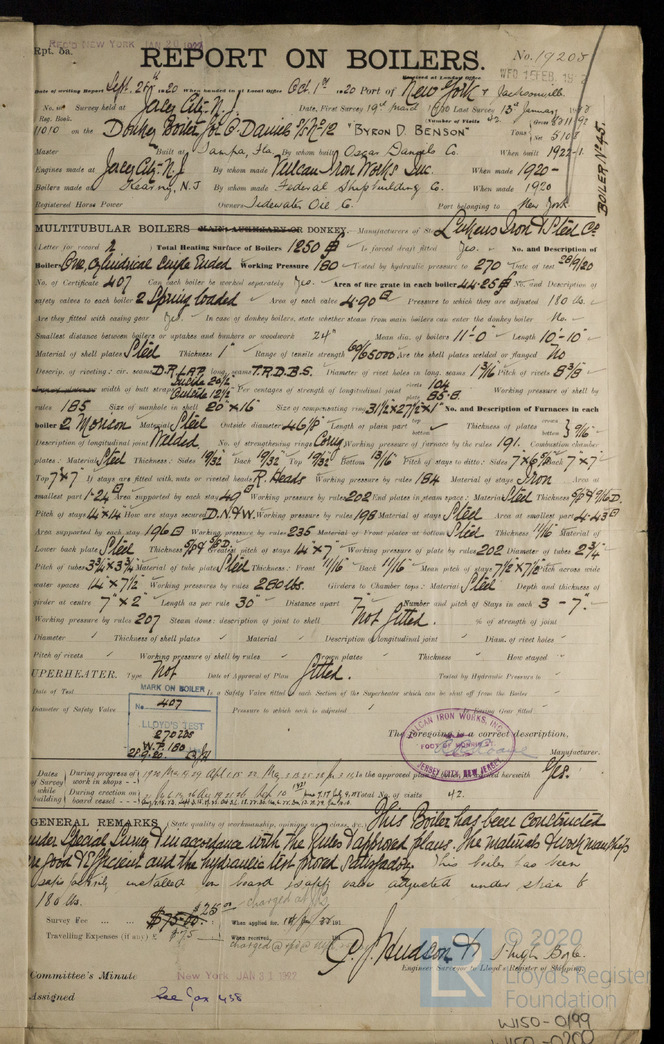 Rpt. 5a.
REC'D NEW YORK JAN 20 1922
REPORT ON BOILERS.
No. 19205
Received at London Office
WED 15 FEB 192
Date of writing Report Sept. 20th 1920 When handed in at Local Office Oct. 1st 1920 Port of New York & Jacksonville
No. in Survey held at Jersey City N.J. Date, First Survey 19th March 1920 Last Survey 13th January 1922
Reg. Book. (Number of Visits 42
11010 on the Donkey Boiler for O. Daniels "BYRON D. BENSON" Tons Gross 8011 Net 5108
BOILER No 45.
Master Built at Tampa, Fla. By whom built Oscar Daniels Co. When built 1922-1
Engines made at Jersey City N.J. By whom made Vulcan Iron Works Inc. When made 1920
Boilers made at Kearny, N.J By whom made Federal Shipbuilding Co. When made 1920
Registered Horse Power Owners Tidewater Oil Co. Port belonging to New York
MULTITUBULAR BOILERS MAIN, AUXILIARY OR DONKEY. Manufacturers of Steel Lukens Iron & Steel Co.
(Letter for record ) Total Heating Surface of Boilers 1250 Is forced draft fitted Yes. No. and Description of
Boilers One Cylindrical Single Ended Working Pressure 180 Tested by hydraulic pressure to 270 Date of test 28/9/20
No. of Certificate 407 Can each boiler be worked separately Yes. Area of fire grate in each boiler 44.25 No. and Description of
safety valves to each boiler 2 Spring loaded Area of each valve 4.90 Pressure to which they are adjusted 180 lbs.
Are they fitted with easing gear Yes In case of donkey boilers, state whether steam from main boilers can enter the donkey boiler No.
Smallest distance between boilers or uptakes and bunkers or woodwork 24" Mean dia. of boilers 11'-0" Length 10'-10"
Material of shell plates Steel Thickness 1" Range of tensile strength 60/65000 Are the shell plates welded or flanged No
Descrip. of riveting: cir. seams D.R. LAP long. seams T.R.D.B.S. Diameter of rivet holes in long. seams 1 3/16 Pitch of rivets 8 3/8
width of butt straps Inside 20 1/2 Outside 12 1/2 Per centages of strength of longitudinal joint rivets 104 plate 85.8 Working pressure of shell by
rules 185 Size of manhole in shell 20" x 16" Size of compensating ring 31 1/2 x 27 1/2 x 1" No. and Description of Furnaces in each
boiler 2 Morison Material Steel Outside diameter 46 1/8" Length of plain part top bottom Thickness of plates crown bottom } 9/16
Description of longitudinal joint Welded No. of strengthening rings Corrug Working pressure of furnace by the rules 191. Combustion chamber
plates: Material Steel Thickness: Sides 19/32 Back 19/32 Top 19/32 Bottom 13/16 Pitch of stays to ditto: Sides 7" x 6 Back 7" x 7"
Top 7" x 7" If stays are fitted with nuts or riveted heads R. Heads Working pressure by rules 184 Material of stays Iron Area at
smallest part 1.24 Area supported by each stay 49 Working pressure by rules 202 End plates in steam space: Material Steel Thickness
Pitch of stays 14 x 14 How are stays secured D.N.&W. Working pressure by rules 198 Material of stays Steel Area at smallest part 4.43
Area supported by each stay 196 Working pressure by rules 235 Material of Front plates at bottom Steel Thickness 11/16 Material of
Lower back plate Steel Thickness Greatest pitch of stays 14" x 7" Working pressure of plate by rules 202 Diameter of tubes 2 3/4"
Pitch of tubes 3 3/4 x 3 3/4 Material of tube plates Steel Thickness: Front 11/16 Back 11/16 Mean pitch of stays 7 1/2 x 7 1/2 Pitch across wide
water spaces 14" x 7 1/2 Working pressures by rules 280 lbs. Girders to Chamber tops: Material Steel Depth and thickness of
girder at centre 7" x 2" Length as per rule 30" Distance apart 7" Number and pitch of Stays in each 3 - 7"
Working pressure by rules 207 Steam dome: description of joint to shell Not fitted. % of strength of joint
Diameter Thickness of shell plates Material Description of longitudinal joint Diam. of rivet holes
Pitch of rivets Working pressure of shell by rules Crown plates Thickness How stayed
UPERHEATER. Type Not Date of Approval of Plan fitted. Tested by Hydraulic Pressure to
Date of Test Is a Safety Valve fitted each Section of the Superheater which can be shut off from the Boiler
Diameter of Safety Valve Pressure to which each is adjusted Is Easing Gear fitted
MARK ON BOILER
No 407
LLOYD'S TEST
270 lbs
W.P. 180
28.9.20.
The foregoing is a correct description,
VULCAN IRON WORKS, INC.
FOOT OF MORRIS ST.
JERSEY CITY, NEW JERSEY
Manufacturer.
Dates of Survey while building
During progress of work in shops
During erection on board vessel
Is the approved plan forwarded herewith Yes.
Total No. of visits 42.
GENERAL REMARKS (State quality of workmanship, opinions as to class, &c. This Boiler has been constructed
under Special Survey & in accordance with the Rules & approved plans. The materials & workmanship
are good & efficient and the hydraulic test proved satisfactory. This boiler has been
satisfactorily installed on board & safety valve adjusted under steam to
180 lbs.
$25.00 charged at
Survey Fee $75.00 When applied for,
Travelling Expenses (if any) £ $75 When received, charged @
P. J. Hudson & Hugh Boyle.
Engineer Surveyor to Lloyd's Register of Shipping.
Committee's Minute New York JAN 31 1922
Assigned See Jax 438
© 2020
LR
Lloyd's Register
Foundation
W150-0199
W150-0200